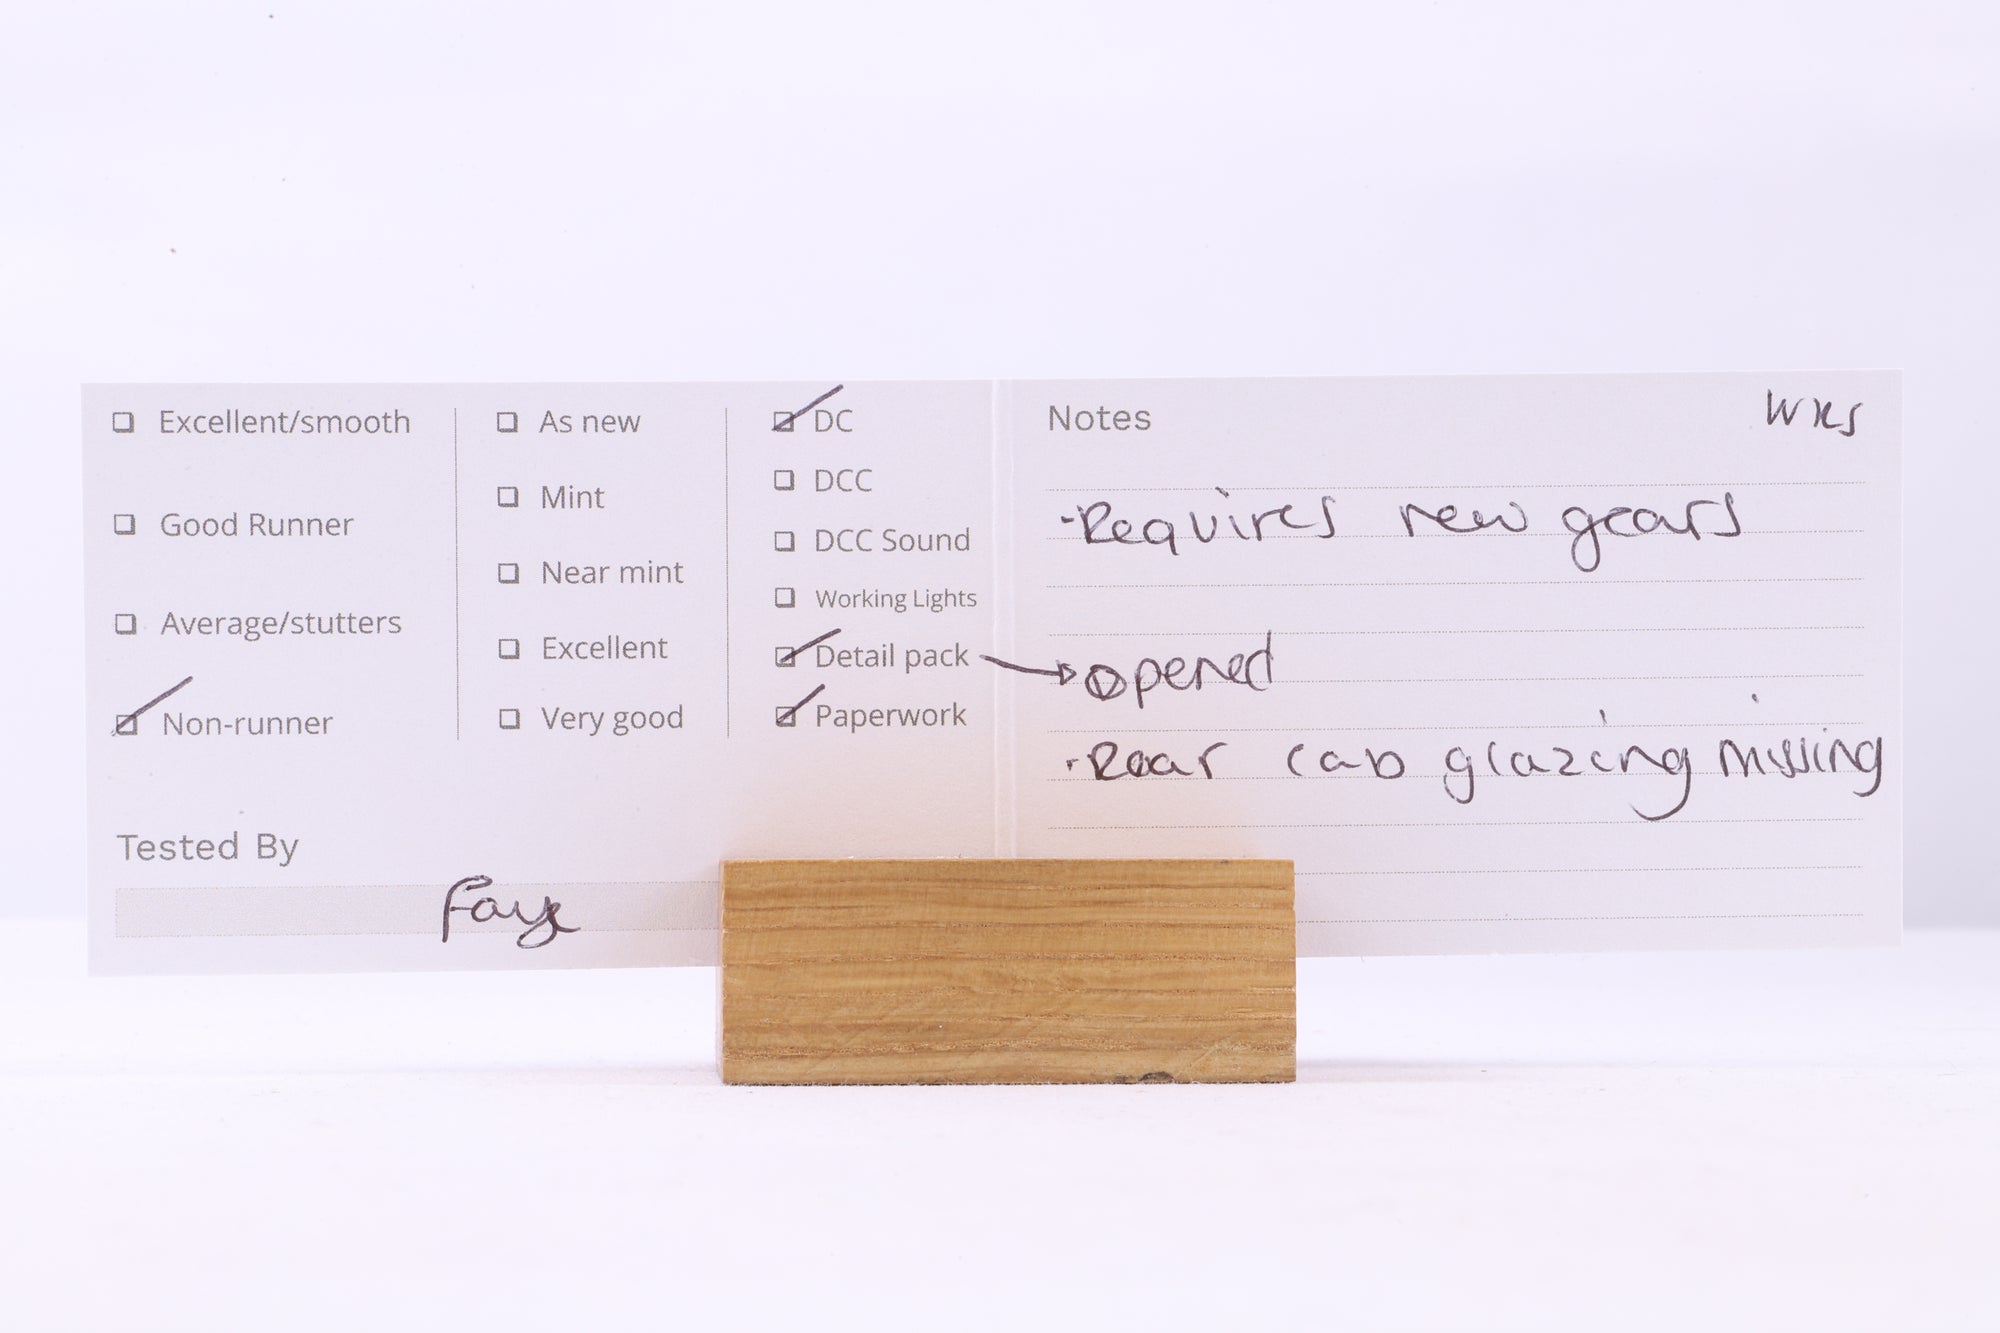 Excellent/smooth
Good Runner
Average/stutters
Non-runner
As new
Mint
Near mint
Excellent
Very good
DC
DCC
DCC Sound
Working Lights
Detail pack
Paperwork
Tested By
Faye
Notes
-Requires new gears
opened
-Rear cab glazing missing